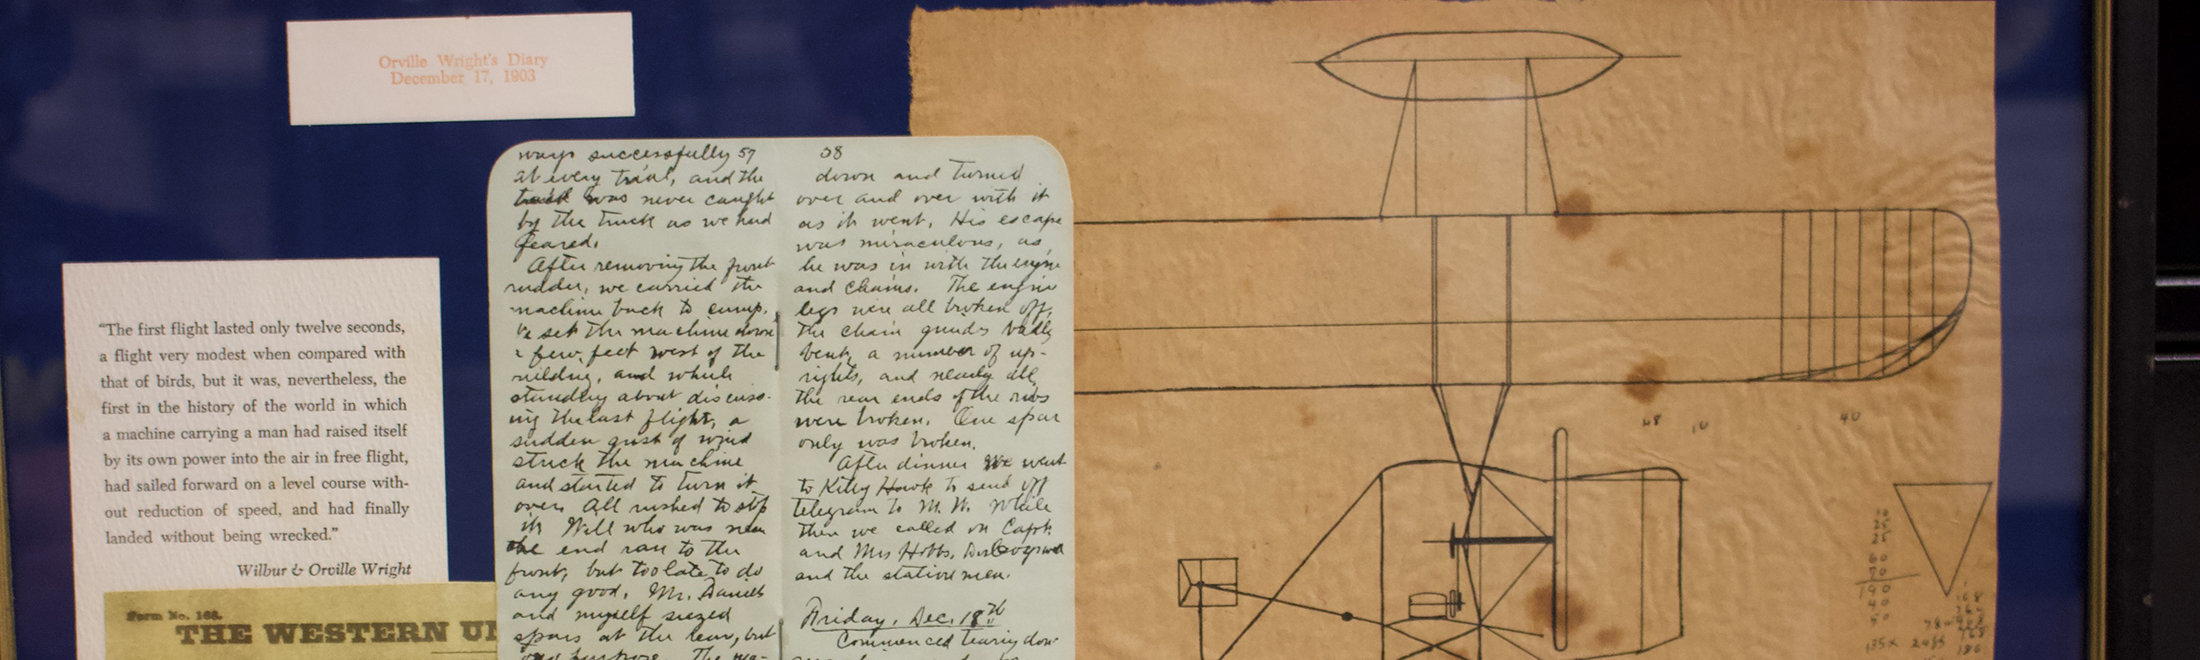 Orville Wright's Diary
December 17, 1903
"The first flight lasted only twelve seconds,
a flight very modest when compared with
that of birds, but it was, nevertheless, the
first in the history of the world in which
a machine carrying a man had raised itself
by its own power into the air in free flight,
had sailed forward on a level course with-
out reduction of speed, and had finally
landed without being wrecked."
Wilbur & Orville Wright
Form No. 168.
THE WESTERN UN
ways successfully 57
at every trial, and the
was never caught
by the truck as we had
feared.
After removing the front
rudder, we carried the
machine back to camp.
We set the machine down
a few feet west of the
building, and while
standing about discuss-
ing the last flight, a
sudden gust of wind
struck the machine
and started to turn it
over. All rushed to stop
it. Will who was near
the end ran to the
front, but too late to do
any good. Mr. Daniels
and myself seized
spars at the rear, but
no purpose. The ma-
58
down and turned
over and over with it
as it went. His escape
was miraculous, as
he was in with the engine
and chains. The engine
legs were all broken off,
the chain guides badly
bent, a number of up-
rights, and nearly all
the rear ends of the ribs
were broken. One spar
only was broken.
After dinner we went
to Kitty Hawk to send off
telegram to M. W. While
there we called on Capt.
and Mrs Hobbs, Dr. Cogswell
and the station men.
Friday, Dec. 18th
Commenced tearing down
48
10
40
25
60
70
190
40
50